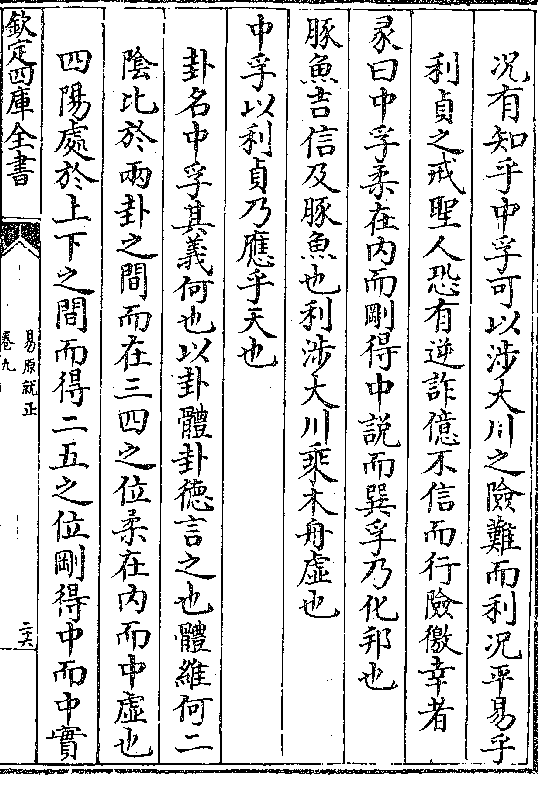 况有知乎中孚可以涉大川之險難而利况平易乎
利貞之戒聖人恐有逆詐億不信而行險徼幸者
彖曰中孚柔在內而剛得中說而巽孚乃化邦也
豚魚吉信及豚魚也利涉大川乘木舟虛也
中孚以利貞乃應乎天也
卦名中孚其義何也以卦體卦德言之也體維何二
陰比於兩卦之間而在三四之位柔在內而中虛也
四陽處於上下之間而得二五之位剛得中而中實
欽定四庫全書
易原就正
卷九
二六